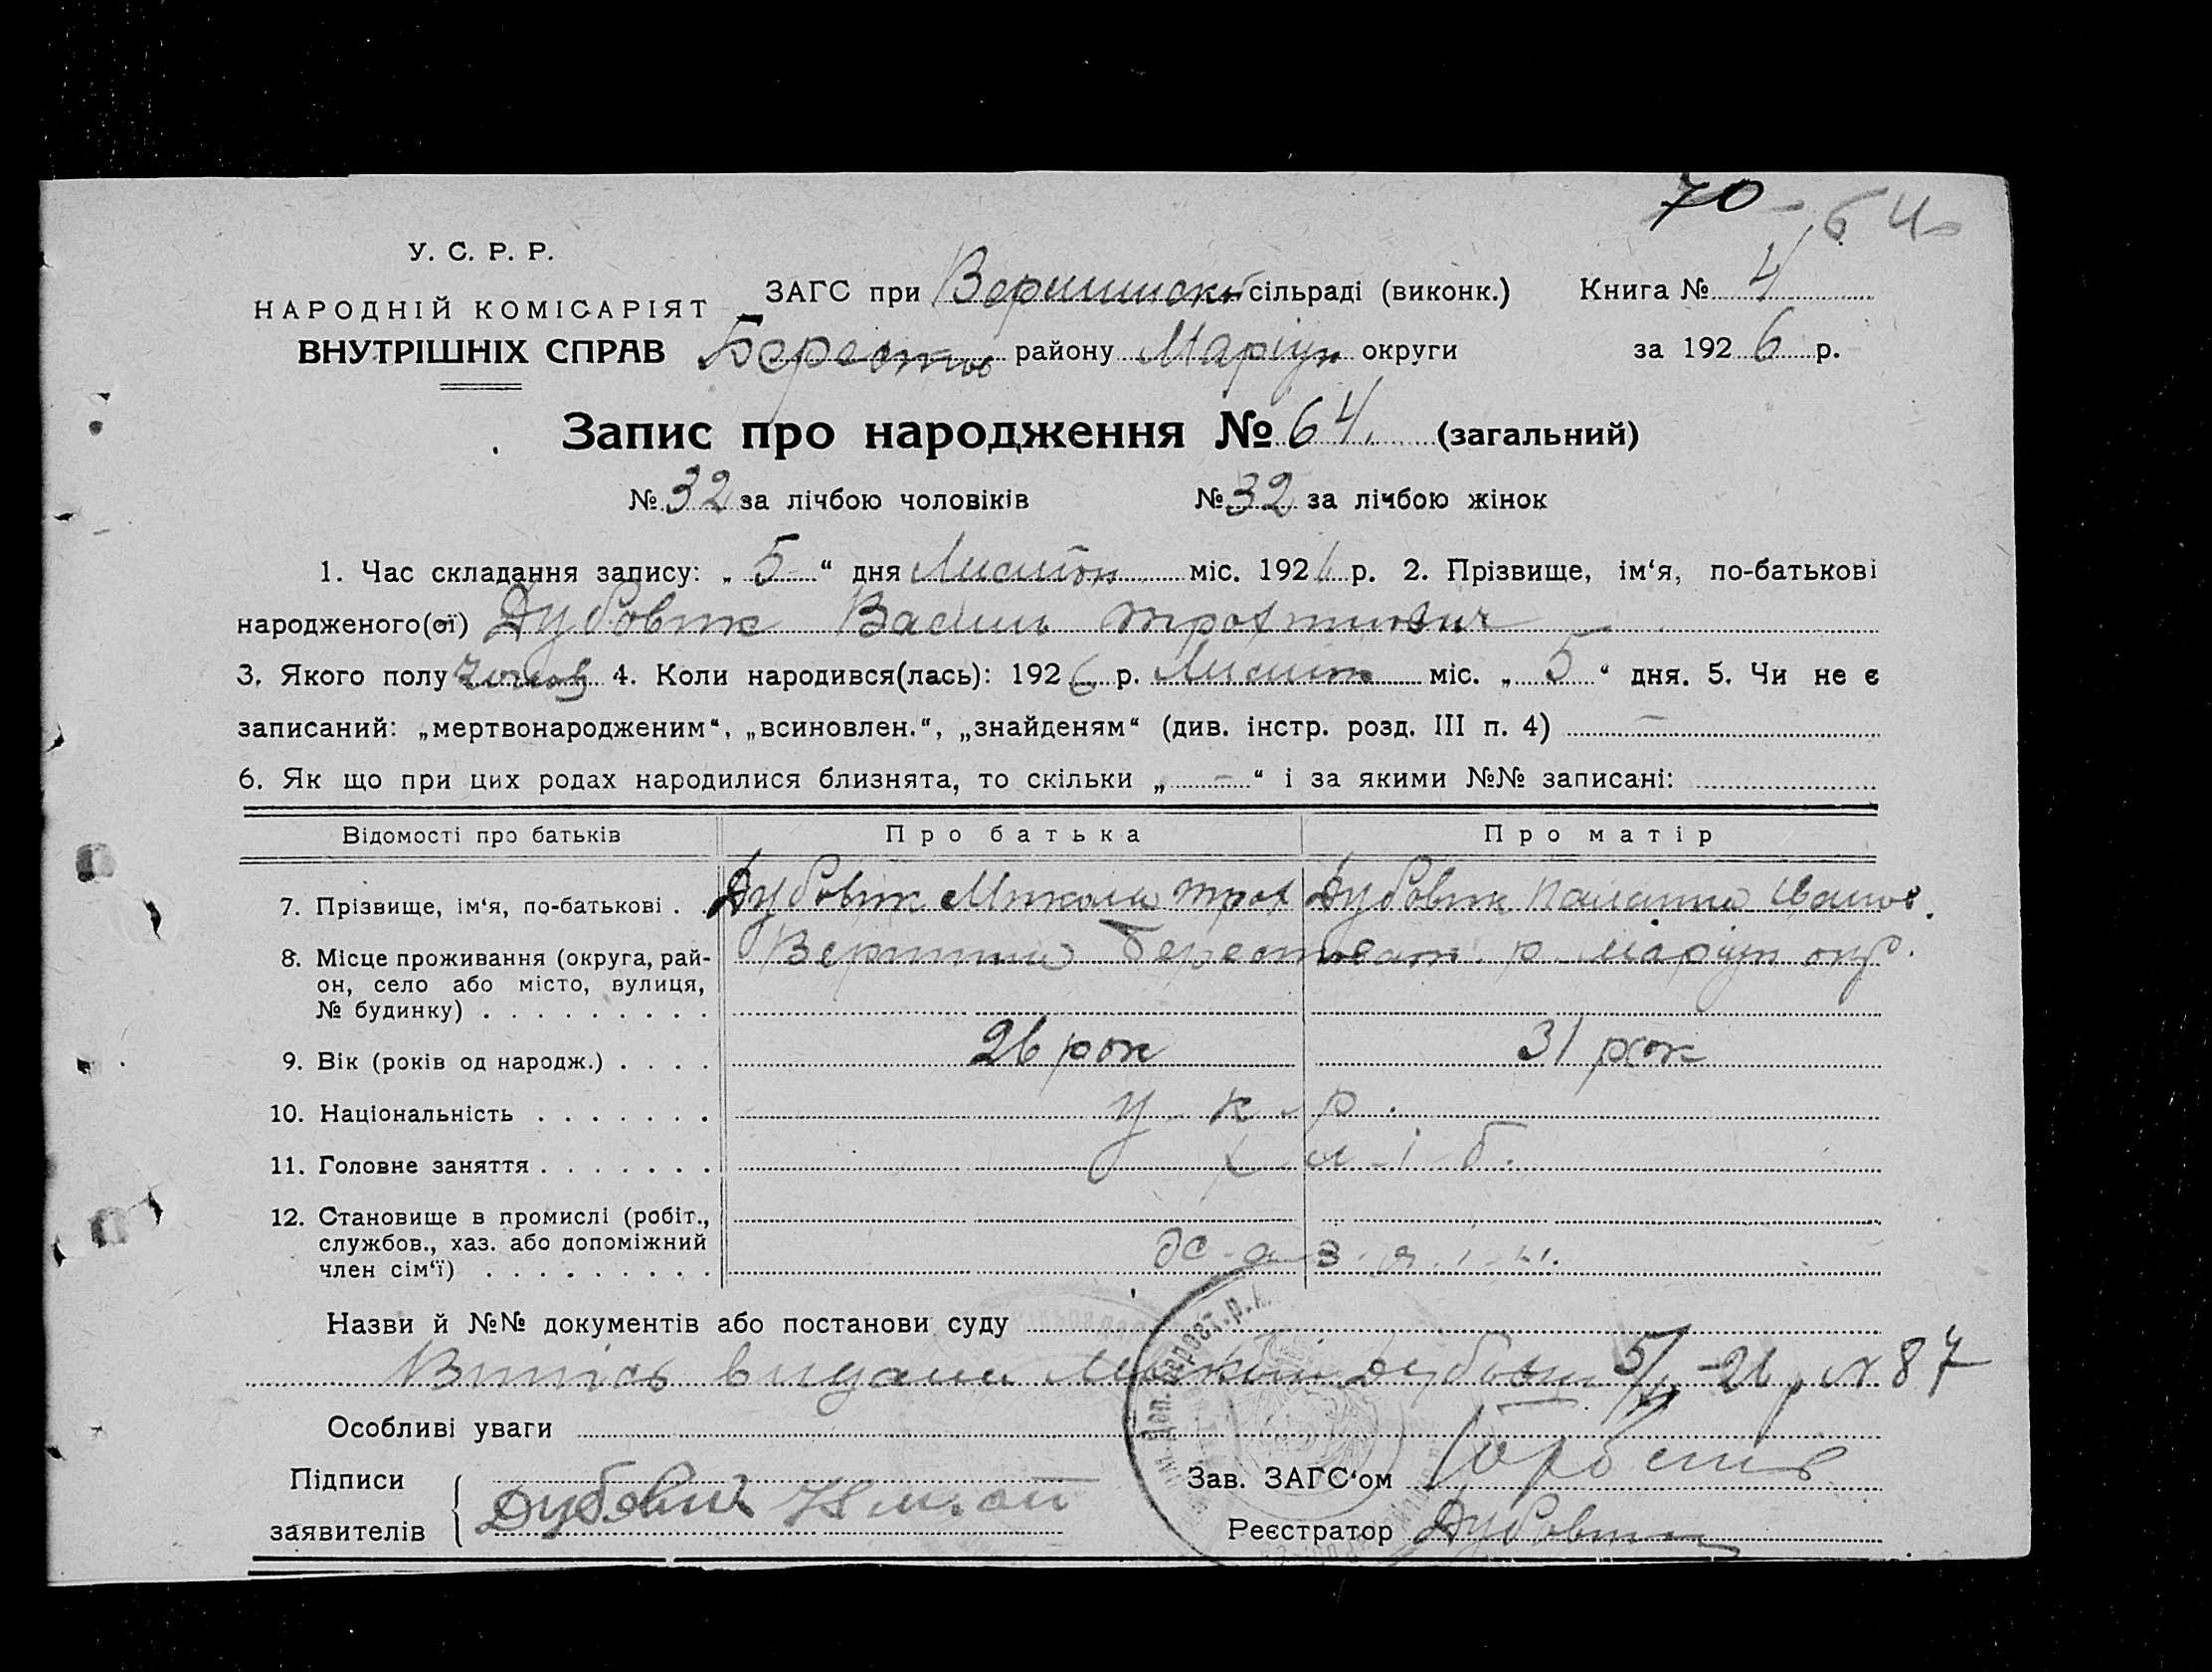 70 - 64
У. С. Р. Р.
НАРОДНІЙ КОМІСАРІЯТ
ВНУТРІШНІХ СПРАВ
ЗАГС при Вершинск сільраді (виконк.) Книга № 4
Берестов району Маріуп округи за 1926 р.
Запис про народження № 64. (загальний)
№ 32 за лічбою чоловіків № 32 за лічбою жінок
1. Час складання запису: „ 5 “ дня Листоп міс. 1926 р. 2. Прізвище, ім‘я, по-батькові
народженого(ої) Дубовик Василь
3. Якого полу чолов 4. Коли народився(лась): 1926 р. Листоп міс. „ 5 “ дня. 5. Чи не є
записаний: „мертвонародженим“, „всиновлен.“, „знайденям“ (див. інстр. розд. III п. 4) —
6. Як що при цих родах народилися близнята, то скільки „ — “ і за якими №№ записані:
Відомості про батьків Про батька Про матір
7. Прізвище, ім‘я, по-батькові . . Дубовик Микола Трох Дубовик Иванов.
8. Місце проживання (округа, рай-
он, село або місто, вулиця,
№ будинку) . . . . . . . . . Вершина Берестовск. р. Маріуп окр.
9. Вік (років од народж.) . . . . 26 рок 31 рок
10. Національність . . . . . . . у к р.
11. Головне заняття . . . . . . . х л і б.
12. Становище в промислі (робіт.,
службов., хаз. або допоміжний
член сім‘ї) . . . . . . . . .
Назви й №№ документів або постанови суду
Випісь видана Дубовик 5/XI-26 р N 87
Особливі уваги
Підписи
заявителів Дубовик
Зав. ЗАГС‘ом
Реєстратор Дубовик